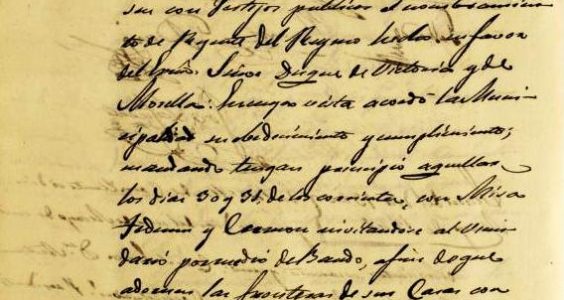 con festejos publicos el nombramien-
to de Regente del Reyno hecho en favor
del Exmo. Señor Duque de Victoria y de
Morella: En cuya vista acordó la Muni-
cipalidad su obedecimiento y cumplimiento;
mandando tengan principio aquellos
los dias 30 y 31 de los corrientes, con Misa
y Sermon invitandose al Vecin-
dario por medio de Bando, a fin de que
adornen las fronteras de sus Casas con